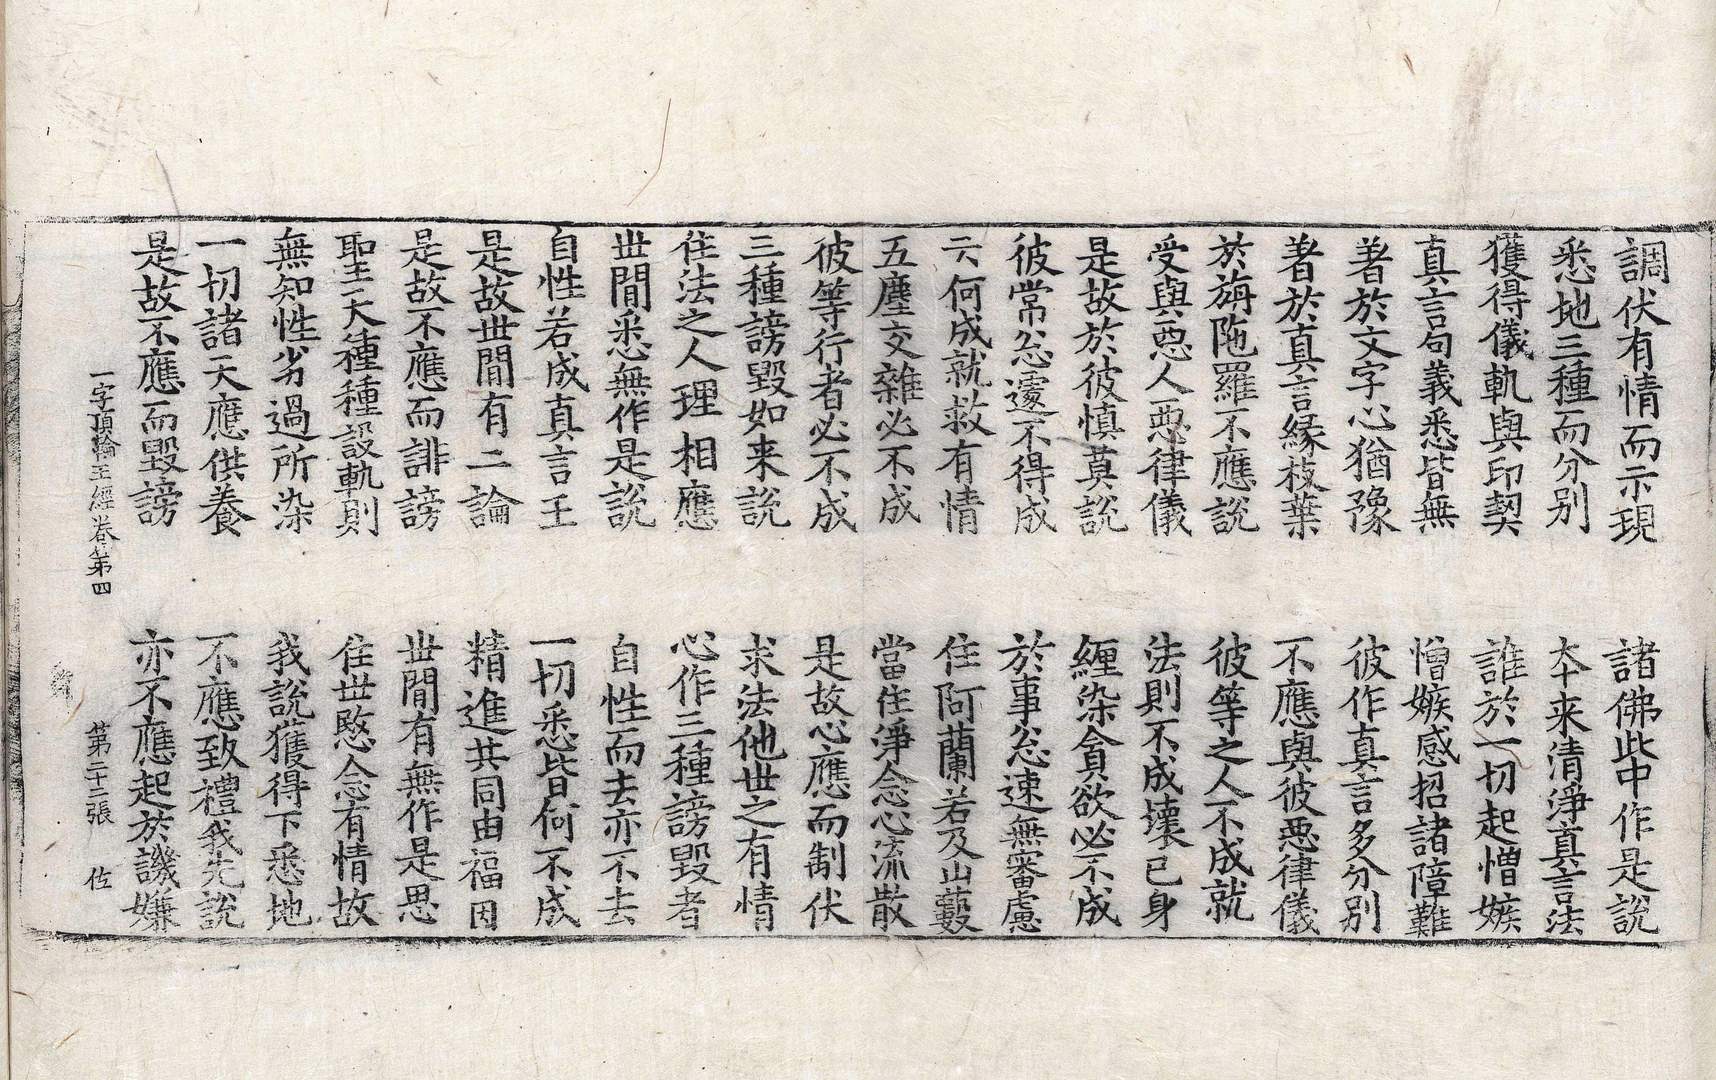 調伏有情而示現　諸佛此中作是說
悉地三種而分別　夲来清淨真言法
獲得儀軌與印契　誰於一切起憎嫉
真言句義悉皆無　憎嫉感招諸障難
著於文字心猶豫　彼作真言多分別
著於真言緣枝葉　不應與彼惡律儀
於旃陁羅不應說　彼等之人不成就
受與惡人惡律儀　法則不成壞己身
是故於彼慎莫說　纏染貪欲必不成
彼常忩遽不得成　於事忩速無審慮
云何成就救有情　住阿蘭若及山藪
五塵交雜必不成　當住淨念心流散
彼等行者必不成　是故心應而制伏
三種謗毀如来說　求法他世之有情
住法之人理相應　心作三種謗毀者
世間悉無作是說　自性而去亦不去
自性若成真言王　一切悉皆何不成
是故世間有二論　精進共同由福因
是故不應而誹謗　世間有無作是思
聖天種種設軌則　住世愍念有情故
無知性劣過所染　我說獲得下悉地
一切諸天應供養　不應致禮我先說
是故不應而毀謗　亦不應起於譏嫌
一字頂輪王經卷第四　第二十二張　佐